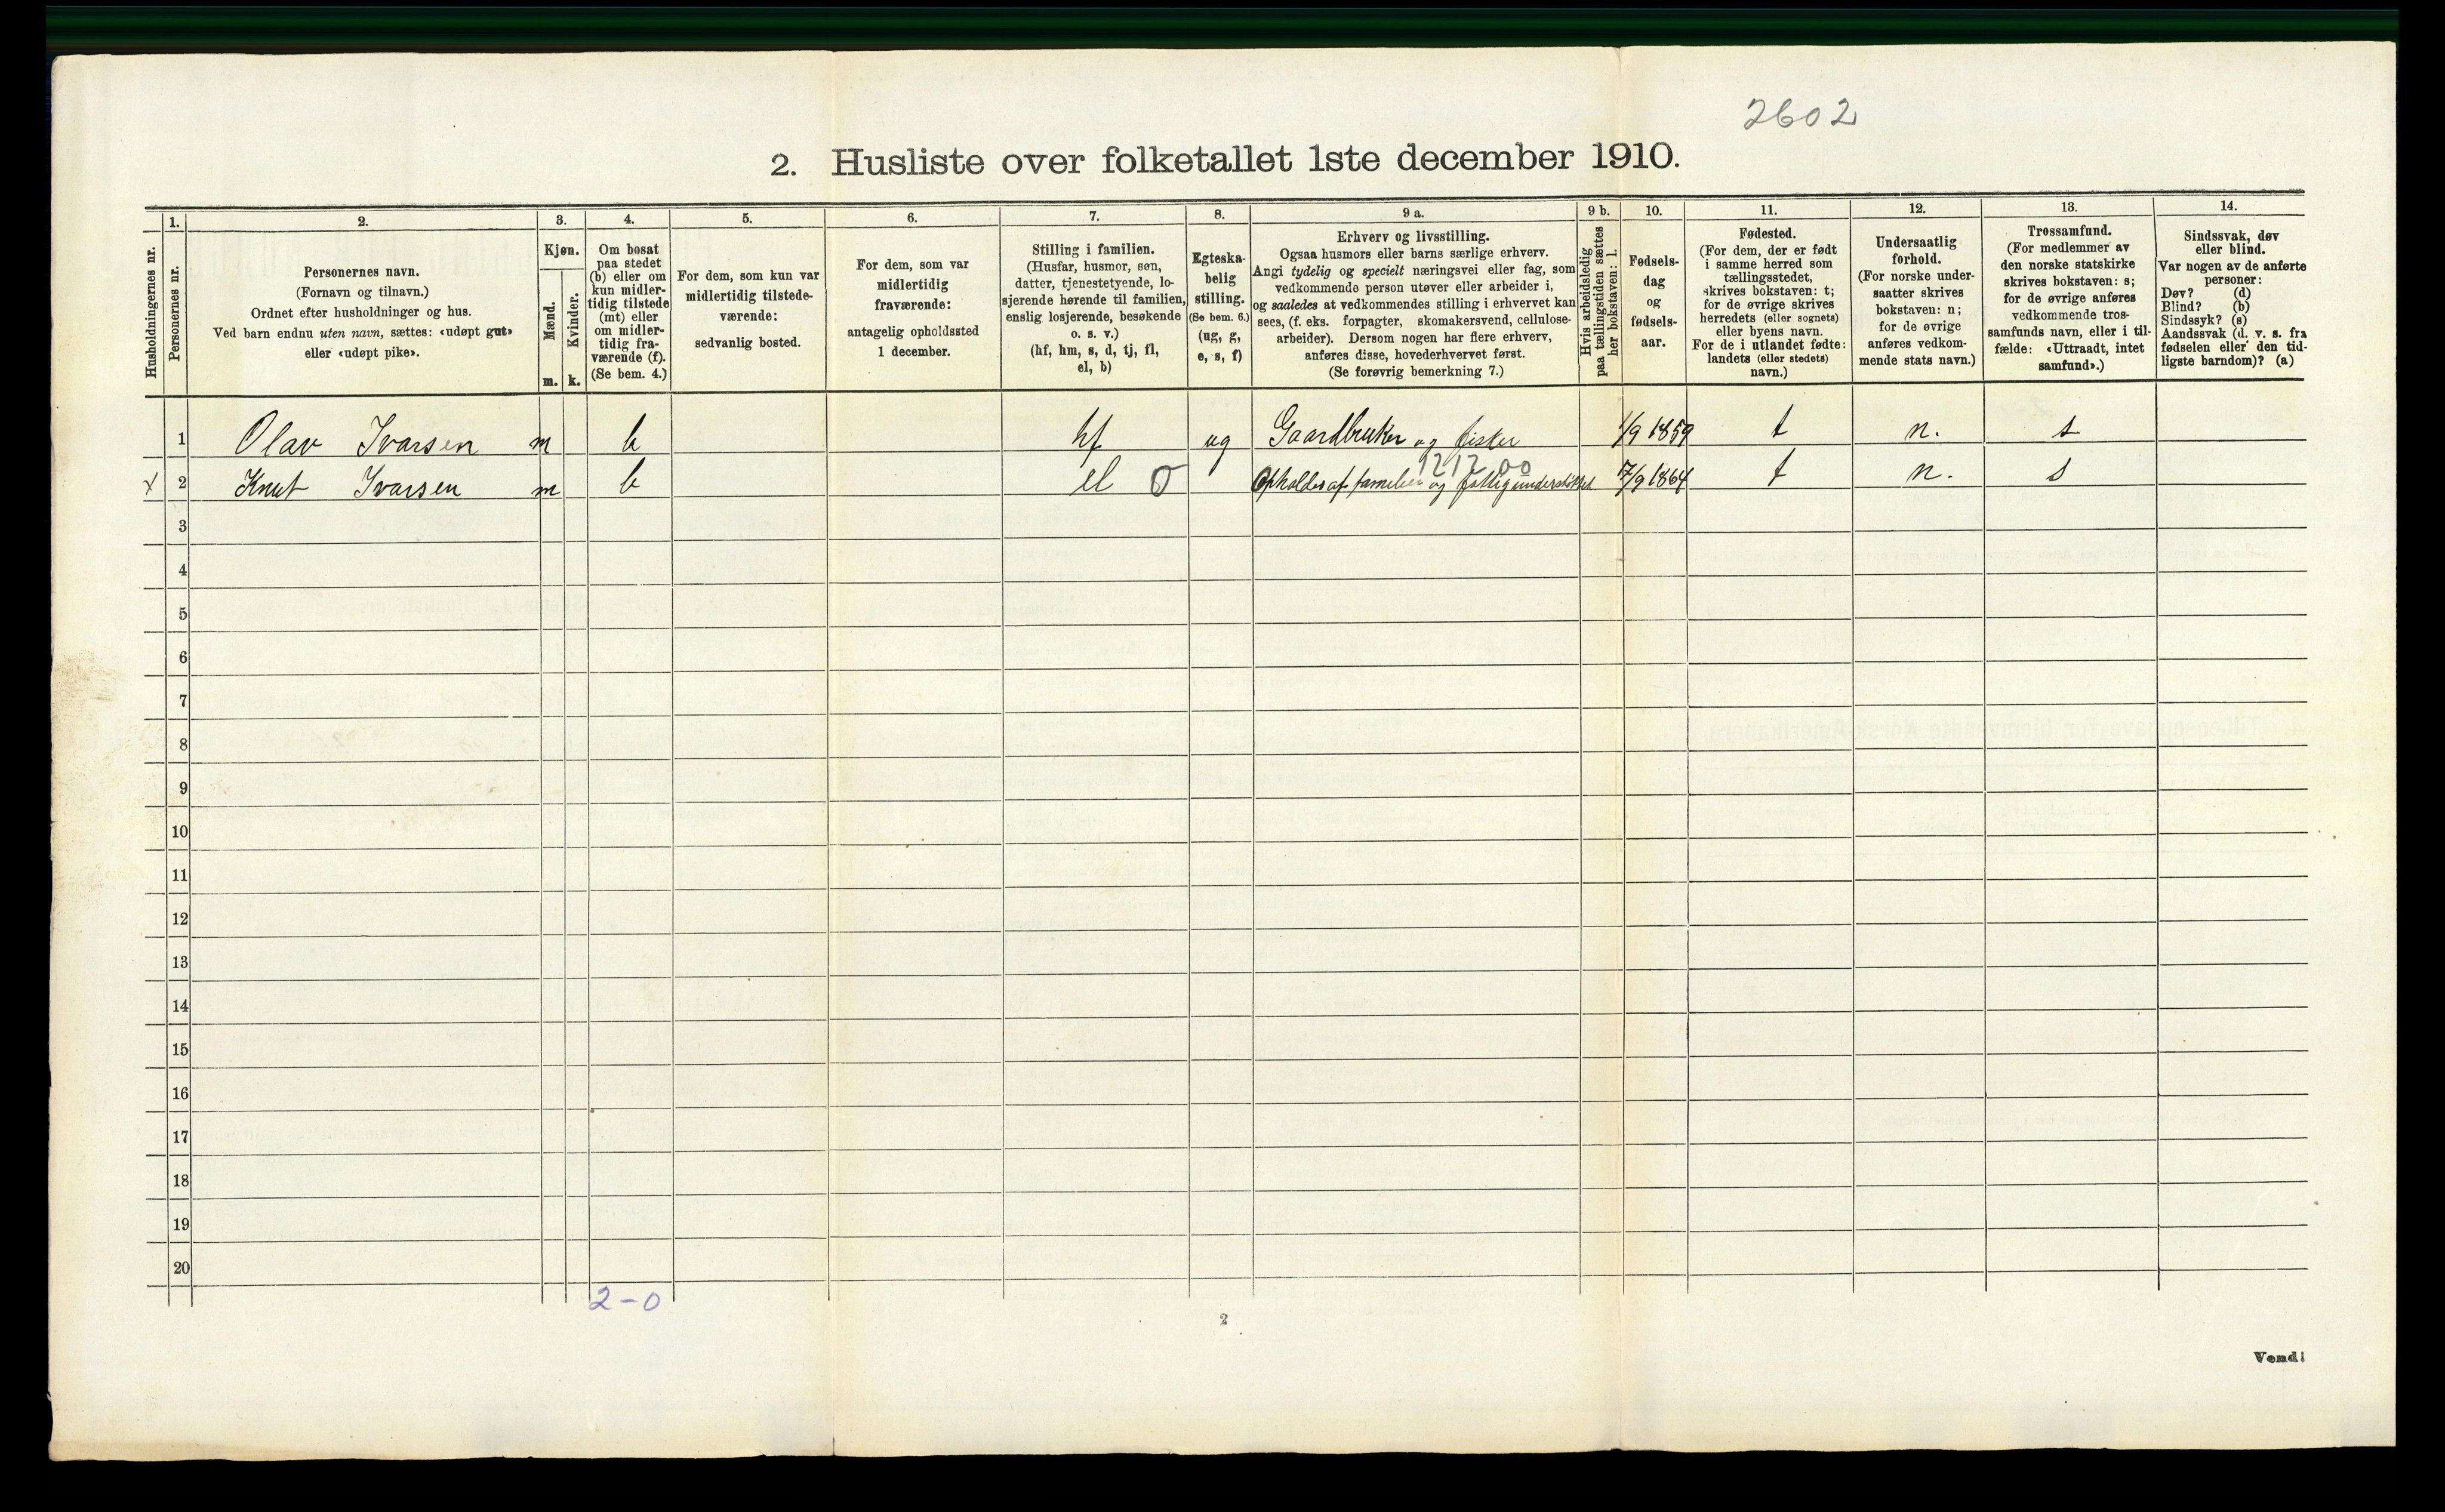 2602
2. Husliste over folketallet 1ste december 1910.
Husholdningernes nr.
1.
Personernes nr.
2.
Personernes navn.
(Fornavn og tilnavn.)
Ordnet efter husholdninger og hus.
Ved barn endnu uten navn, sættes: «udøpt gut»
eller «udøpt pike».
3.
Kjøn.
Mænd.
Kvinder.
m. k.
4.
Om bosat
paa stedet
(b) eller om
kun midler-
tidig tilstede
(mt) eller
om midler-
tidig fra-
værende (f).
(Se bem. 4.)
5.
For dem, som kun var
midlertidig tilstede-
værende:
sedvanlig bosted.
6.
For dem, som var
midlertidig
fraværende:
antagelig opholdssted
1 december.
7.
Stilling i familien.
(Husfar, husmor, søn,
datter, tjenestetyende, lo-
sjerende hørende til familien,
enslig losjerende, besøkende
o. s. v.)
(hf, hm, s, d, tj, fl,
el, b)
8.
Egteska-
belig
stilling.
(Se bem. 6.)
(ug, g,
e, s, f)
9 a.
Erhverv og livsstilling.
Ogsaa husmors eller barns særlige erhverv.
Angi tydelig og specielt næringsvei eller fag, som
vedkommende person utøver eller arbeider i,
og saaledes at vedkommendes stilling i erhvervet kan
sees, (f. eks. forpagter, skomakersvend, cellulose-
arbeider). Dersom nogen har flere erhverv,
anføres disse, hovederhvervet først.
(Se forøvrig bemerkning 7.)
9 b.
Hvis arbeidsledig
paa tællingstiden sættes
her bokstaven: l.
10.
Fødsels-
dag
og
fødsels-
aar.
11.
Fødested.
(For dem, der er født
i samme herred som
tællingsstedet,
skrives bokstaven: t;
for de øvrige skrives
herredets (eller sognets)
eller byens navn.
For de i utlandet fødte:
landets (eller stedets)
navn.)
12.
Undersaatlig
forhold.
(For norske under-
saatter skrives
bokstaven: n;
for de øvrige
anføres vedkom-
mende stats navn.)
13.
Trossamfund.
(For medlemmer av
den norske statskirke
skrives bokstaven: s;
for de øvrige anføres
vedkommende tros-
samfunds navn, eller i til-
fælde: «Uttraadt, intet
samfund».)
14.
Sindssvak, døv
eller blind.
Var nogen av de anførte
personer:
Døv? (d)
Blind? (b)
Sindssyk? (s)
Aandssvak (d. v. s. fra
fødselen eller den tid-
ligste barndom)? (a)
1 Olav Ivarsen m b hf ug Gaardbruker og fisker 1/9 1859 t n. s
1212,00
x 2 Knut Ivarsen m b el 0 Opholdes af familien og fattigunderstöttet 17/9 1864 t n. s
3
4
5
6
7
8
9
10
11
12
13
14
15
16
17
18
19
20
2-0
2
Vend!